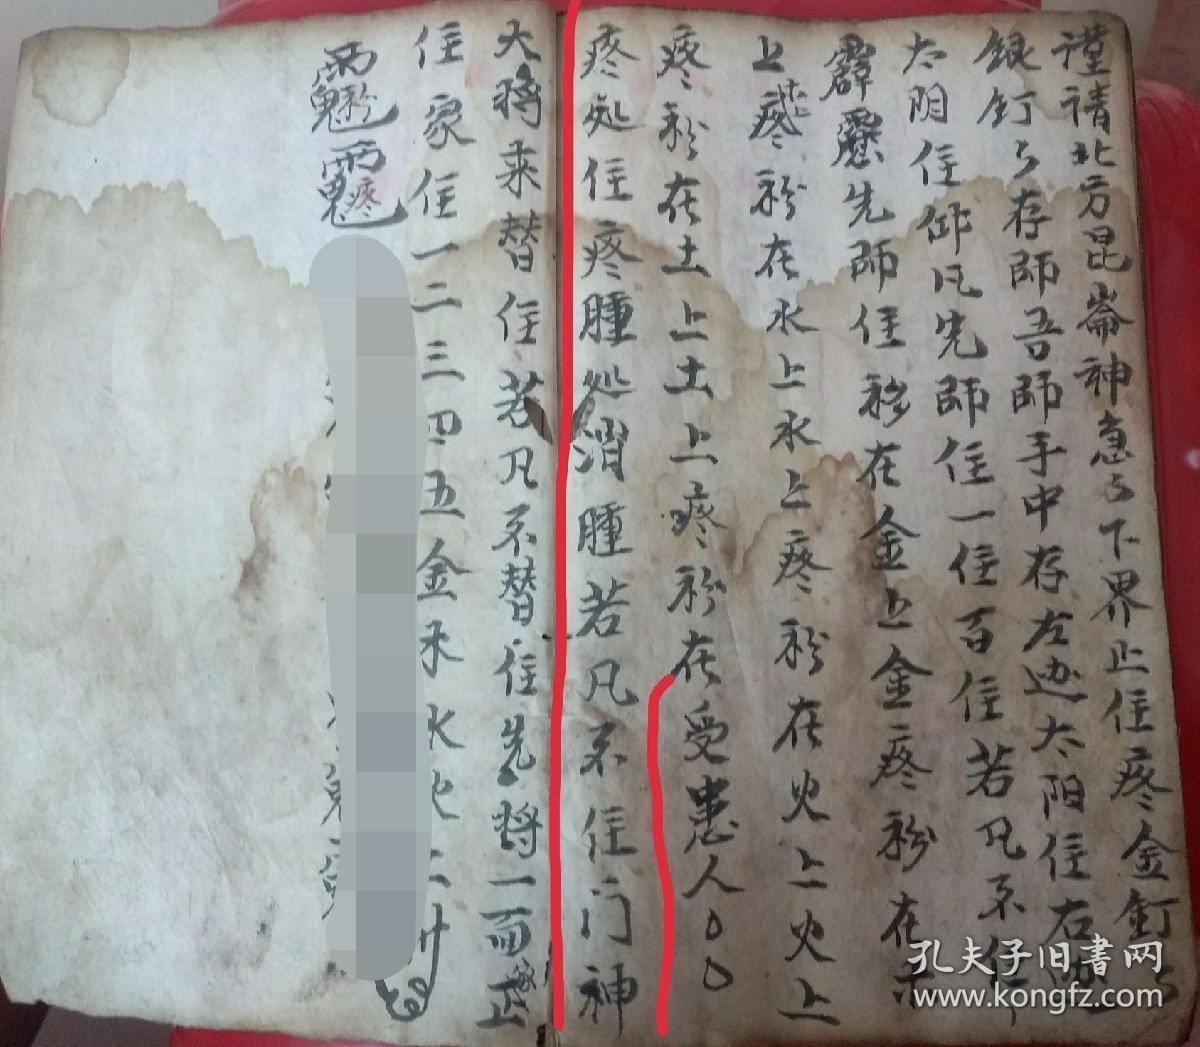 謹請北方昆崙神急々下界止住疼金釘々
銀釘々存師吾師手中存左边太阳住右边
太阴住仰凡先師住一住百住若凡不住
霹靂先師住移在金上金疼移在木
上疼木上移在水上水上疼移在火上火上
疼移在土上土上疼移在受患人
疼处住疼腫处消腫若凡不住门神
大将来替住若凡不替住先将一面正
住家住一二三四五金木水火土
孔夫子旧书网
www.kongfz.com